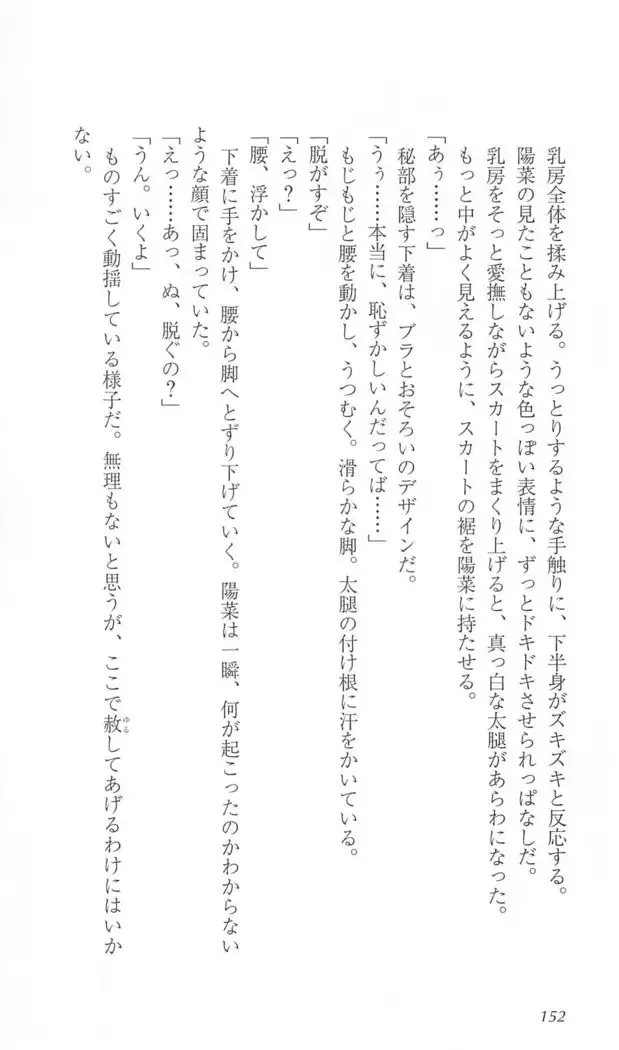 乳房全体を揉み上げる。うっとりするような手触りに、下半身がズキズキと反応する。
陽菜の見たこともないような色っぽい表情に、ずっとドキドキさせられっぱなしだ。
乳房をそっと愛撫しながらスカートをまくり上げると、真っ白な太腿があらわになった。
もっと中がよく見えるように、スカートの裾を陽菜に持たせる。
「あぅ……っ」
秘部を隠す下着は、ブラとおそろいのデザインだ。
「うぅ……本当に、恥ずかしいんだってば……」
もじもじと腰を動かし、うつむく。滑らかな脚。太腿の付け根に汗をかいている。
「脱がすぞ」
「えっ？」
「腰、浮かして」
下着に手をかけ、腰から脚へとずり下げていく。陽菜は一瞬、何が起こったのかわからない
ような顔で固まっていた。
「えっ……あっ、ぬ、脱ぐの？」
「うん。いくよ」
ものすごく動揺している様子だ。無理もないと思うが、ここで赦ゆるしてあげるわけにはいか
ない。
152